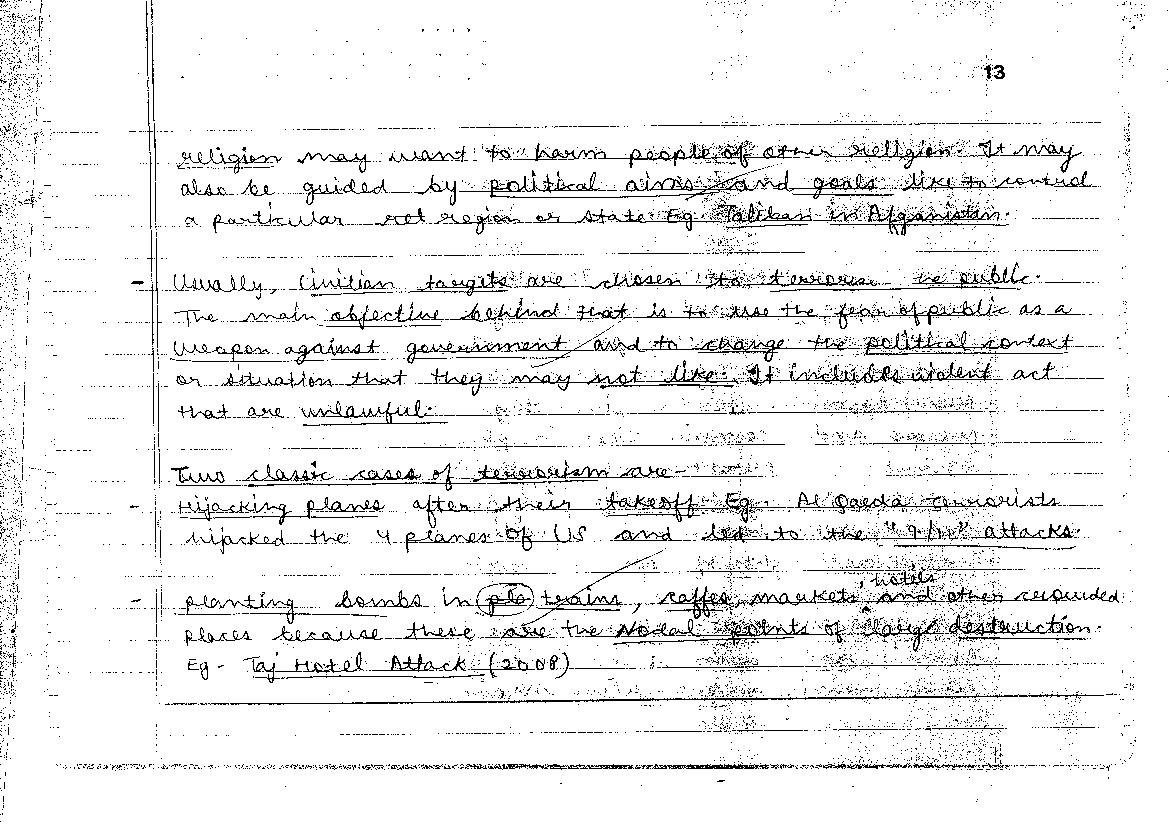 13
religion may want to harm people of other religion. It may
also be guided by political aims and goals like to control
a particular region or state. Eg. Taliban in Afganistan.
- Usually, Civilian targets are chosen to terrorise he public.
The main objective behind that is to use the fear of public as a
weapon against government and to change the political context
or situation that they may not like. It includes violent act
that are unlawful.
Two classic cases of terrorism are -
- Hijacking planes after their takeoff. Eg. Al Qaeda terrorists
hijacked the 4 planes of US and led to the "9/11" attacks.
hotels
- planting bombs in pla trains, caffes, markets, and other crowded
places because these are the Nodal points of large destruction.
Eg - Taj Hotel Attack (2008)